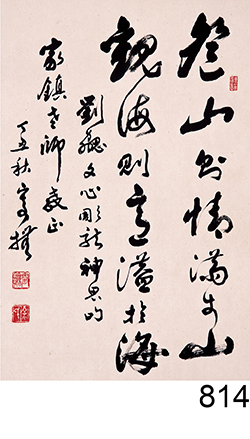 登山則情滿於山
觀海則意溢於海
劉勰文心雕龍神思句
家鎮老師正
丁丑秋
814